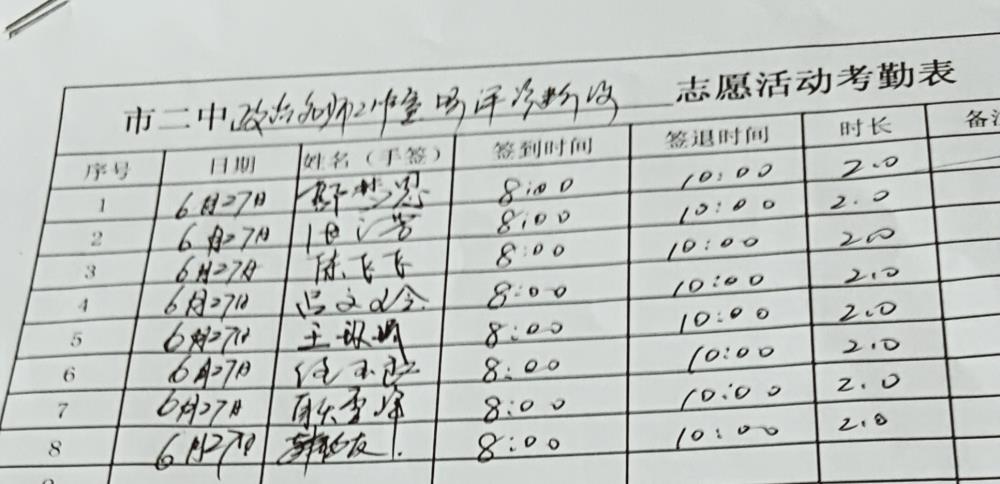 市二中政治名师工作室 志愿活动考勤表
序号 日期 姓名（手签） 签到时间 签退时间 时长 备注
1 6月27日 8:00 10:00 2.0
2 6月27日 8:00 10:00 2.0
3 6月27日 陈飞飞 8:00 10:00 2.0
4 6月27日 8:00 10:00 2.0
5 6月27日 8:00 10:00 2.0
6 6月27日 8:00 10:00 2.0
7 6月27日 8:00 10:00 2.0
8 6月27日 8:00 10:00 2.0